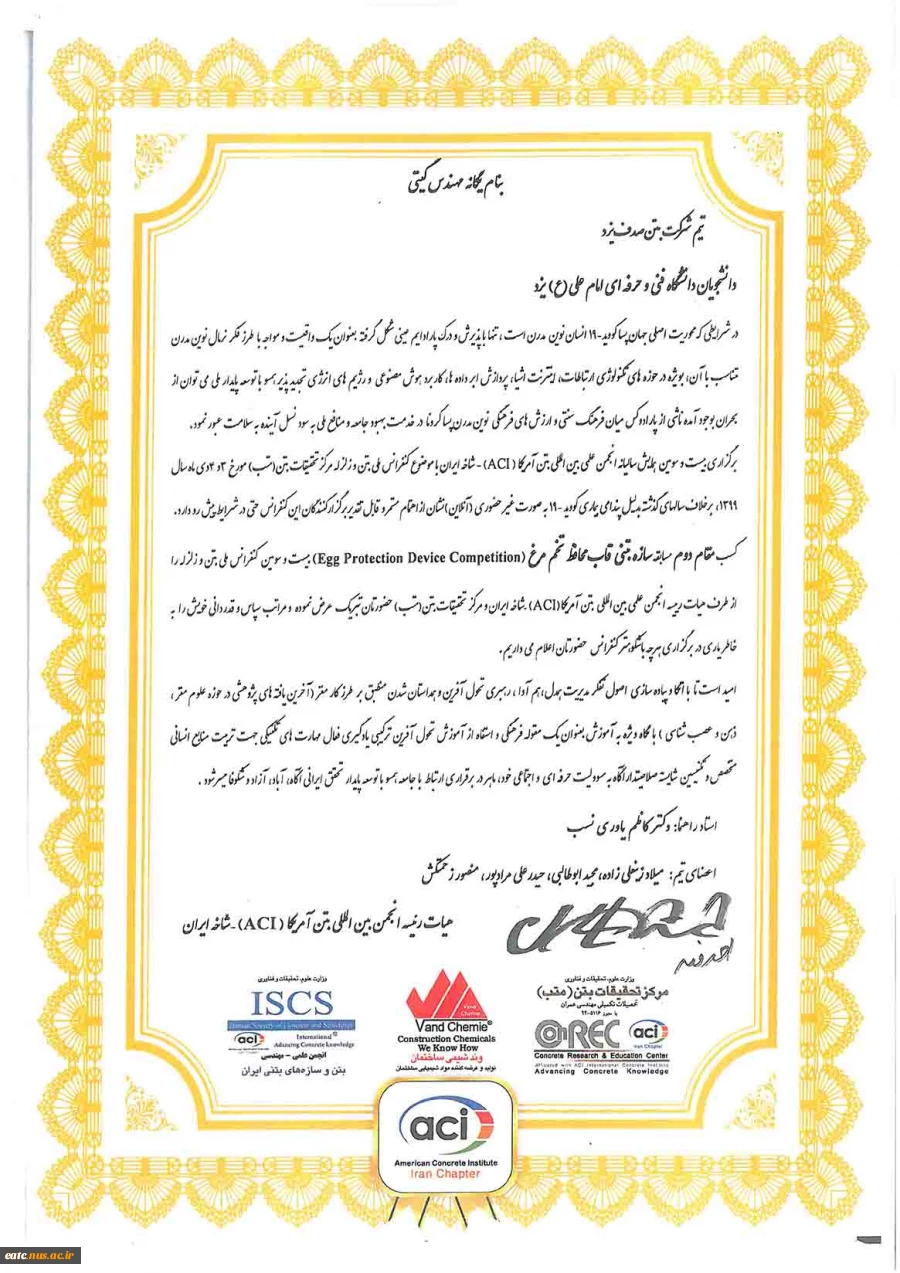 بنام یگانه مهندس گیتی
تیم شرکت بتن صدف یزد
دانشجویان دانشگاه فنی و حرفه ای امام علی (ع) یزد
در شرایطی که محوریت اصلی جهان پسا کووید-۱۹ انسان نوین مدرن است، تنها با پذیرش و درک پارادایم عینی شکل گرفته بعنوان یک واقعیت و مواجه با طرز فکر نرمال نوین مدرن
متناسب با آن، بویژه در حوزه های تکنولوژی ارتباطات، اینترنت اشیاء، پردازش ابر داده ها، کاربرد هوش مصنوعی و رژیم های انرژی تجدید پذیر همسو با توسعه پایدار ملی می توان از
بحران بوجود آمده ناشی از پارادوکس میان فرهنگ سنتی و ارزش های فرهنگی نوین مدرن پسا کرونا در خدمت بهبود جامعه و منافع ملی به سود نسل آینده به سلامت عبور نمود.
برگزاری بیست و سومین همایش سالیانه انجمن علمی بین المللی بتن آمریکا (ACI) - شاخه ایران با موضوع کنفرانس ملی بتن و زلزله مرکز تحقیقات بتن (متب) مورخ ۳ و ۴ دی ماه سال
۱۳۹۹، برخلاف سالهای گذشته بدلیل پندامی بیماری کووید-۱۹ به صورت غیر حضوری (آنلاین) نشان از اهتمام مستمر و قابل تقدیر برگزار کنندگان این کنفرانس حتی در شرایط پیش رو دارد.
کسب مقام دوم مسابقه سازه بتنی قاب محافظ تخم مرغ (Egg Protection Device Competition) بیست و سومین کنفرانس ملی بتن و زلزله را
از طرف هیات رییسه انجمن علمی بین المللی بتن آمریکا (ACI) ـ شاخه ایران و مرکز تحقیقات بتن (متب) حضورتان تبریک عرض نموده و مراتب سپاس و قدردانی خویش را به
خاطر یاری در برگزاری هرچه باشکوهتر کنفرانس حضورتان اعلام می داریم.
امید است تا با اتکا و پیاده سازی اصول تفکر مدیریت همدل، هم آوا، رهبری تحول آفرین و همداستان شدن منطبق بر طرز کار مغز (آخرین یافته های پژوهشی در حوزه علوم مغز،
ذهن و عصب شناسی) با نگاه ویژه به آموزش بعنوان یک مقوله فرهنگی و استفاده از آموزش تحول آفرین ترکیبی یادگیری فعال مهارت های تکنیکی جهت تربیت منابع انسانی
متخصص و تکنسین شایسته صلاحیتدار آگاه به مسولیت حرفه ای و اجتماعی خود، ماهر در برقراری ارتباط با جامعه همسو با توسعه پایدار تحقق ایرانی آگاه، آباد، آزاد و شکوفا میسر شود.
استاد راهنما: دکتر کاظم یاوری نسب
اعضای تیم: میلاد زینعلی زاده، مجید ابوطالبی، حیدر علی مرادپور، منصور زحمتکش
هیات رئیسه انجمن بین المللی بتن آمریکا (ACI) ـ شاخه ایران
وزارت علوم، تحقیقات و فناوری
ISCS
Iranian Society of Concrete and Structures
aci
International
Advancing Concrete knowledge
انجمن علمی - مهندسی
بتن و سازه‌های بتنی ایران
Vand Chemie
Vand Chemie®
Construction Chemicals
We Know How
وند شیمی ساختمان
تولید و عرضه کننده مواد شیمیایی ساختمان
وزارت علوم، تحقیقات و فناوری
مرکز تحقیقات بتن (متب)
تحصیلات تکمیلی مهندسی عمران
ConREC
aci
Iran Chapter
Concrete Research & Education Center
Affiliated with ACI International Concrete Institute
Advancing Concrete Knowledge
aci
American Concrete Institute
Iran Chapter
eatc.nus.ac.ir